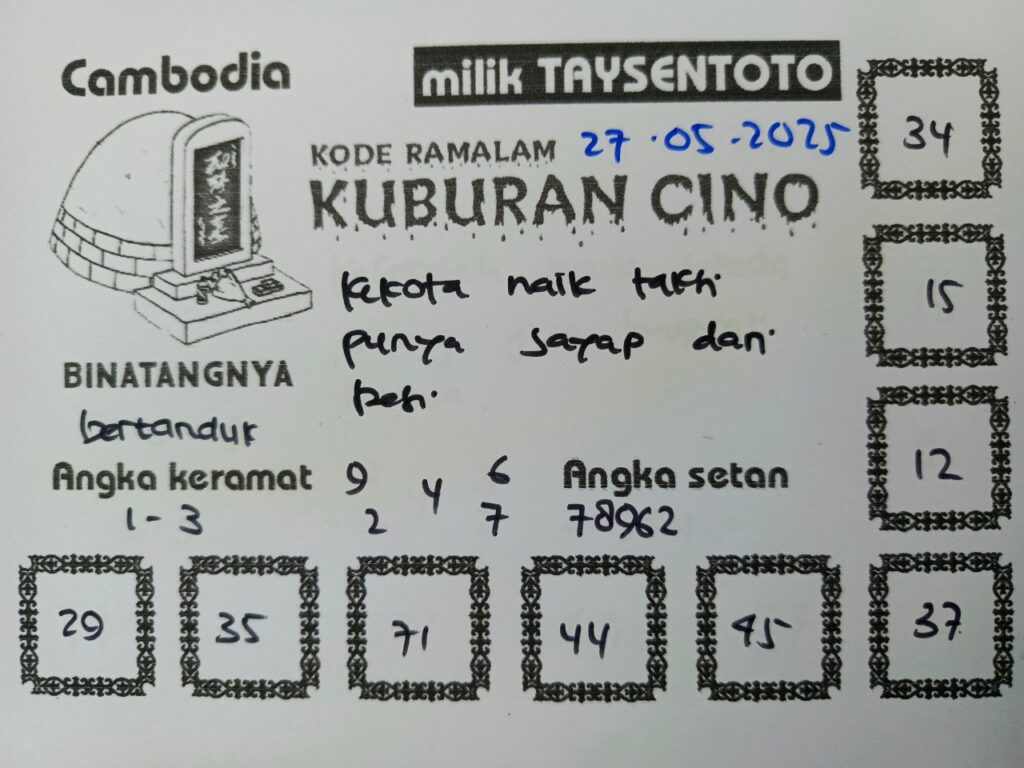 Cambodia
milik TAYSENTOTO
KODE RAMALAM 27.05.2025
KUBURAN CINO
kekota naik taksi
punya sayap dari
besi.
BINATANGNYA
bertanduk
Angka keramat
1-3
9 6
4
2 7
Angka setan
78962
34
15
12
29 35 71 44 45 37